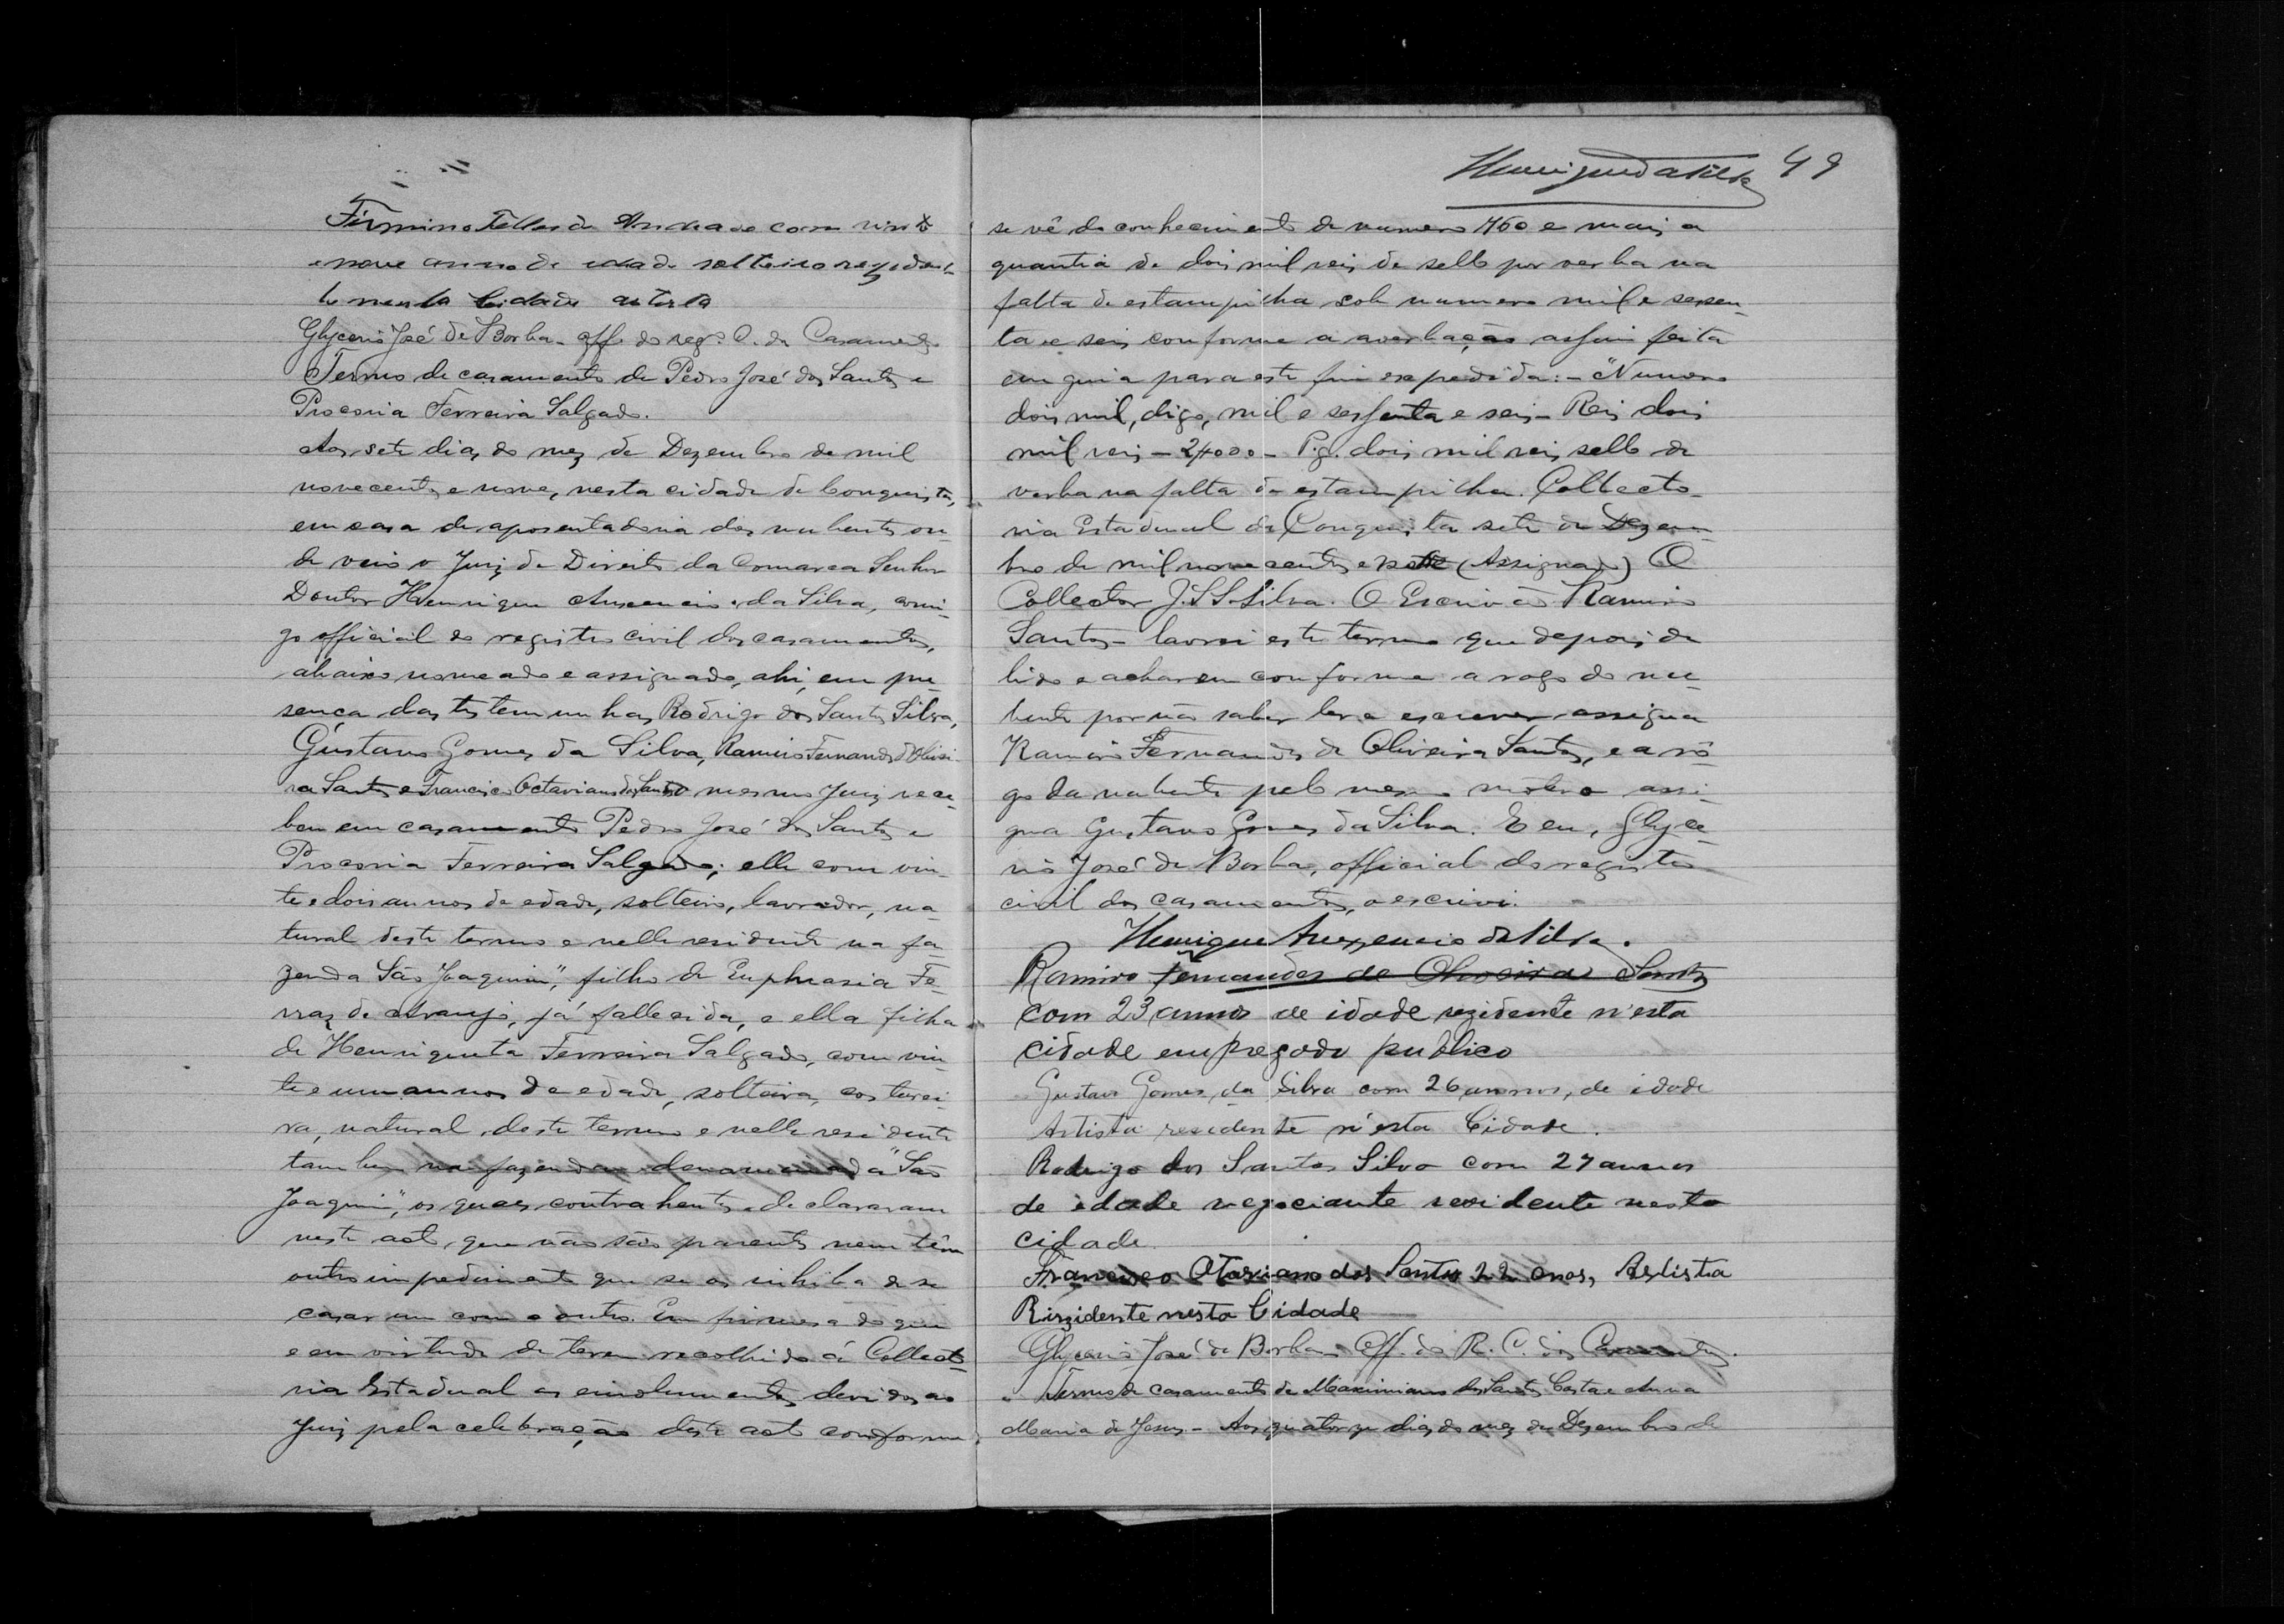 Firmino Telles de Andrade com vinte
e nove annos de idade solteiro rezeden-
te nesta Cidade artista
Glycerio José de Borba. off. do reg. C. de Casamentos
Termo de casamento de Pedro José dos Santos e
Procoria Ferreira Salgado.
Aos sete dias do mez de Dezembro de mil
novecentos e nove, nesta cidade de Conquista,
em casa de aposentadoria dos nubentes on-
de veio o Juiz de Direito da Comarca Senhor
Doutor Henrique Auxencio da Silva, comi-
go official do registro civil dos casamentos,
abaixo nomeado e assignado, ahi, em pre-
sença das testemunhas, Rodrigo dos Santos Silva,
Gustavo Gomes da Silva, Ramiro Fernandes d'Olivei-
ra Santos e Francisco Octaviano dos Santos o mesmo Juiz rece-
beu em casamento Pedro José dos Santos e
Procoria Ferreira Salgado; elle com vin-
te e dois annos de edade, solteiro, lavrador, na-
tural deste termo e nelle residente na fa-
zenda "São Joaquim", filho de Euphrasia Fe-
rraz de Araujo, já fallecida, e ella filha
de Henriqueta Ferreira Salgado, com vin-
te e um annos de edade, solteira, costurei-
ra, natural deste termo e nelle residente
tambem na fazenda denominada "São
Joaquim", os quaes contrahentes declararam
neste acto, que não são parentes nem têm
outro impedimento que se os inhiba de se
casar um com o outro. Em firmesa do que
e em virtude de terem recolhido á Collecto-
ria Estadual os emolumentos devidos ao
Juiz pela celebração deste acto conforme
Henrique da Silva 49
se vê do conhecimento de numero 760 e mais a
quantia de dois mil reis de sello por verba na
falta de estampilha sob numero mil e sessen-
ta e seis conforme a averbação assim feita
em guia para este fim expedida: - "Numero
dois mil, digo, mil e sessenta e seis - Reis dois
mil reis - 2$000 - Pg. dois mil reis, sello de
verba na falta de estampilha. Collecto-
ria Estadual da Conquista sete de Dezem-
bro de mil novecentos e (Assignado) O
Collector J. S. S. Silva. O Escrivão Ramiro
Santos - lavrei este termo que depois de
lido e acharem conforme a rogo do nu-
bente por não saber ler e escrever assigna
Ramiro Fernandes de Oliveira Santos, e a ro-
go da nubente pelo mesmo motivo assi-
gna Gustavo Gomes da Silva. E eu, Glyce-
rio José de Borba, official do registro
civil dos casamentos, o escrivi.
Henrique Auxencio da Silva.
Ramiro Fernandes de Oliveira Santos
com 23 annos de idade rezidente n'esta
cidade empregado publico
Gustavo Gomes da Silva com 26 annos, de idade
Artista residente n'esta Cidade.
Rodrigo dos Santos Silva com 27 annos
de idade negociante residente nesta
cidade
Francisco Otaviano dos Santos 22 anos, Artista
Rizidente nesta Cidade
Glycerio José de Borba Off. do R. C. dos Casamentos.
Termo de casamento de Maximiano dos Santos Costa e Anna
Maria de Jesus - Aos quatorze dias do mez de Dezembro de